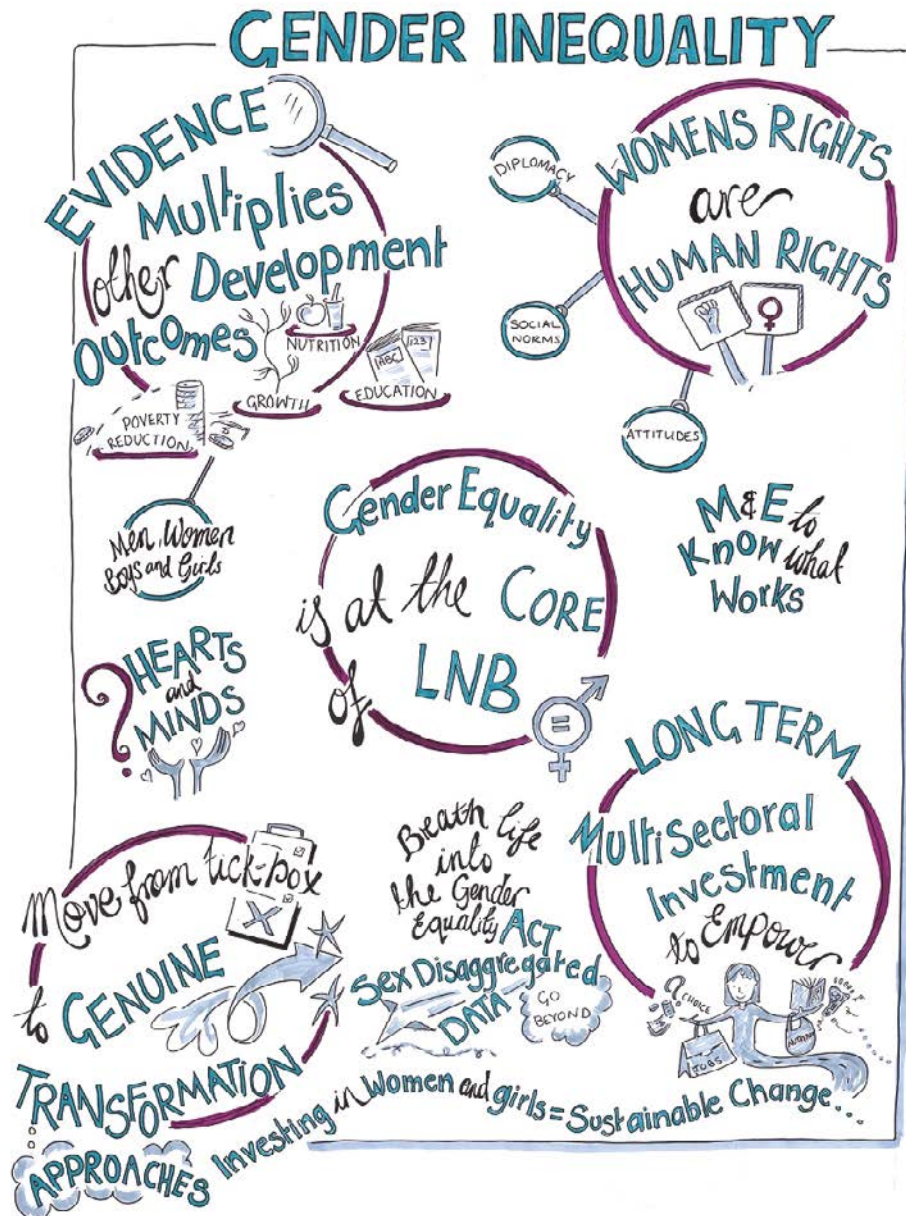 GENDER INEQUALITY
EVIDENCE
Multiplies
other Development
Outcomes
NUTRITION
ABC
123
GROWTH
EDUCATION
POVERTY
REDUCTION
Men, Women
Boys and Girls
WOMENS RIGHTS
are
HUMAN RIGHTS
DIPLOMACY
SOCIAL
NORMS
ATTITUDES
Gender Equality
is at the CORE
of LNB
=
M&E to
Know what
Works
? HEARTS
and
MINDS
LONG TERM
MultiSectoral
Investment
to Empower
CHOICE
JOBS
NUTRITION
Move from tick-box
to GENUINE
TRANSFORMATION
APPROACHES
Breath life
into
the Gender
Equality ACT
Sex Disaggregated
DATA
GO
BEYOND
Investing in Women and girls = Sustainable Change...